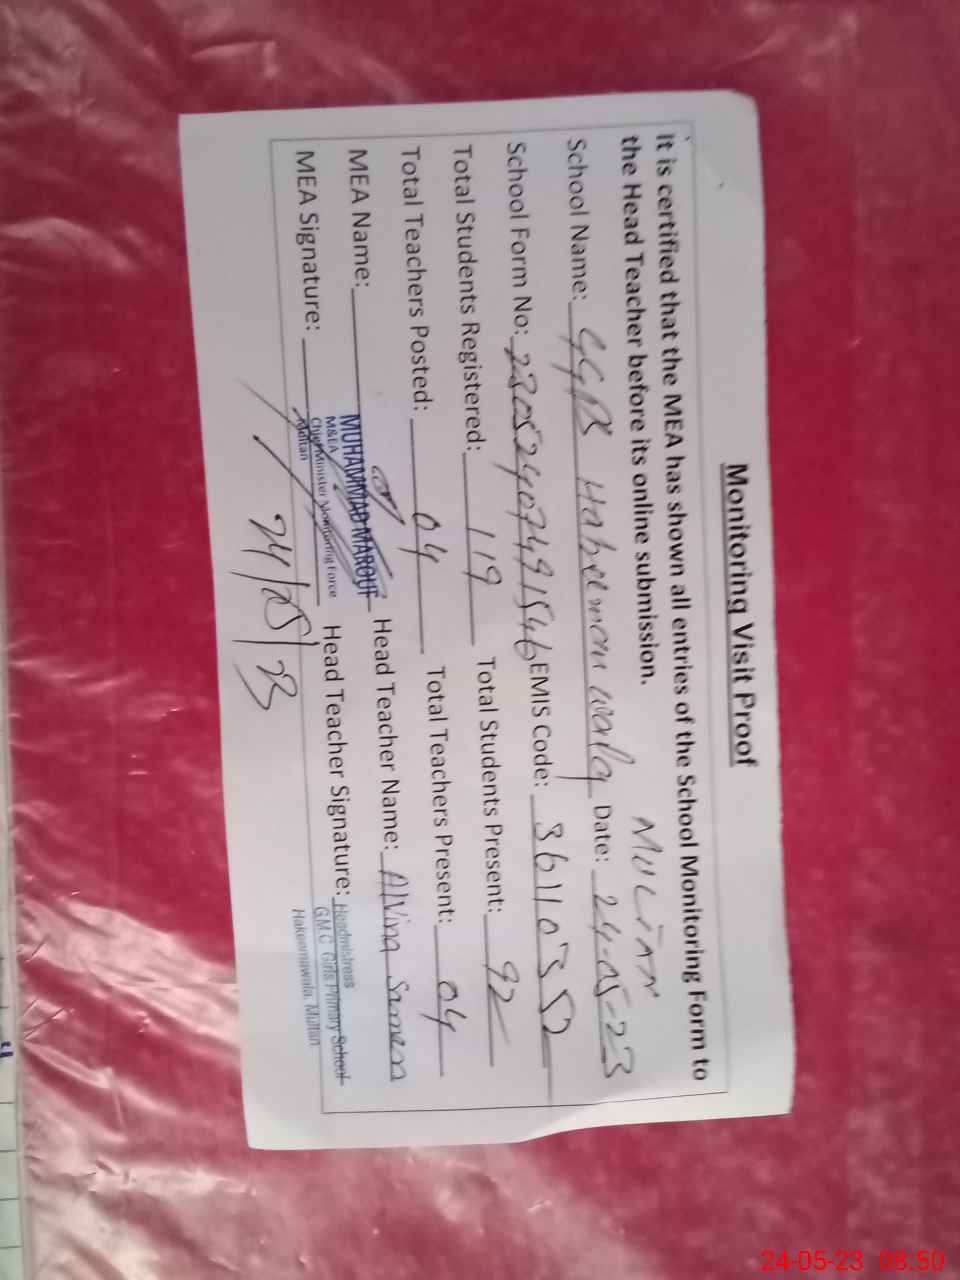 Monitoring Visit Proof
It is certified that the MEA has shown all entries of the School Monitoring Form to
the Head Teacher before its online submission.
MULTAN
School Name: GGPS Hakeemon wala Date: 24-05-23
School Form No: 23052407491546 EMIS Code: 36110552
Total Students Registered: 119 Total Students Present: 92
Total Teachers Posted: 04 Total Teachers Present: 04
MEA Name: MUHAMMAD MAROUF Head Teacher Name: Alvina
M&EA
Chief Minister Monitoring Force
Multan
MEA Signature: Head Teacher Signature: Headmistress
GMC Girls Primary School
Hakeemawala, Multan
24/05/23
24-05-23 08:50